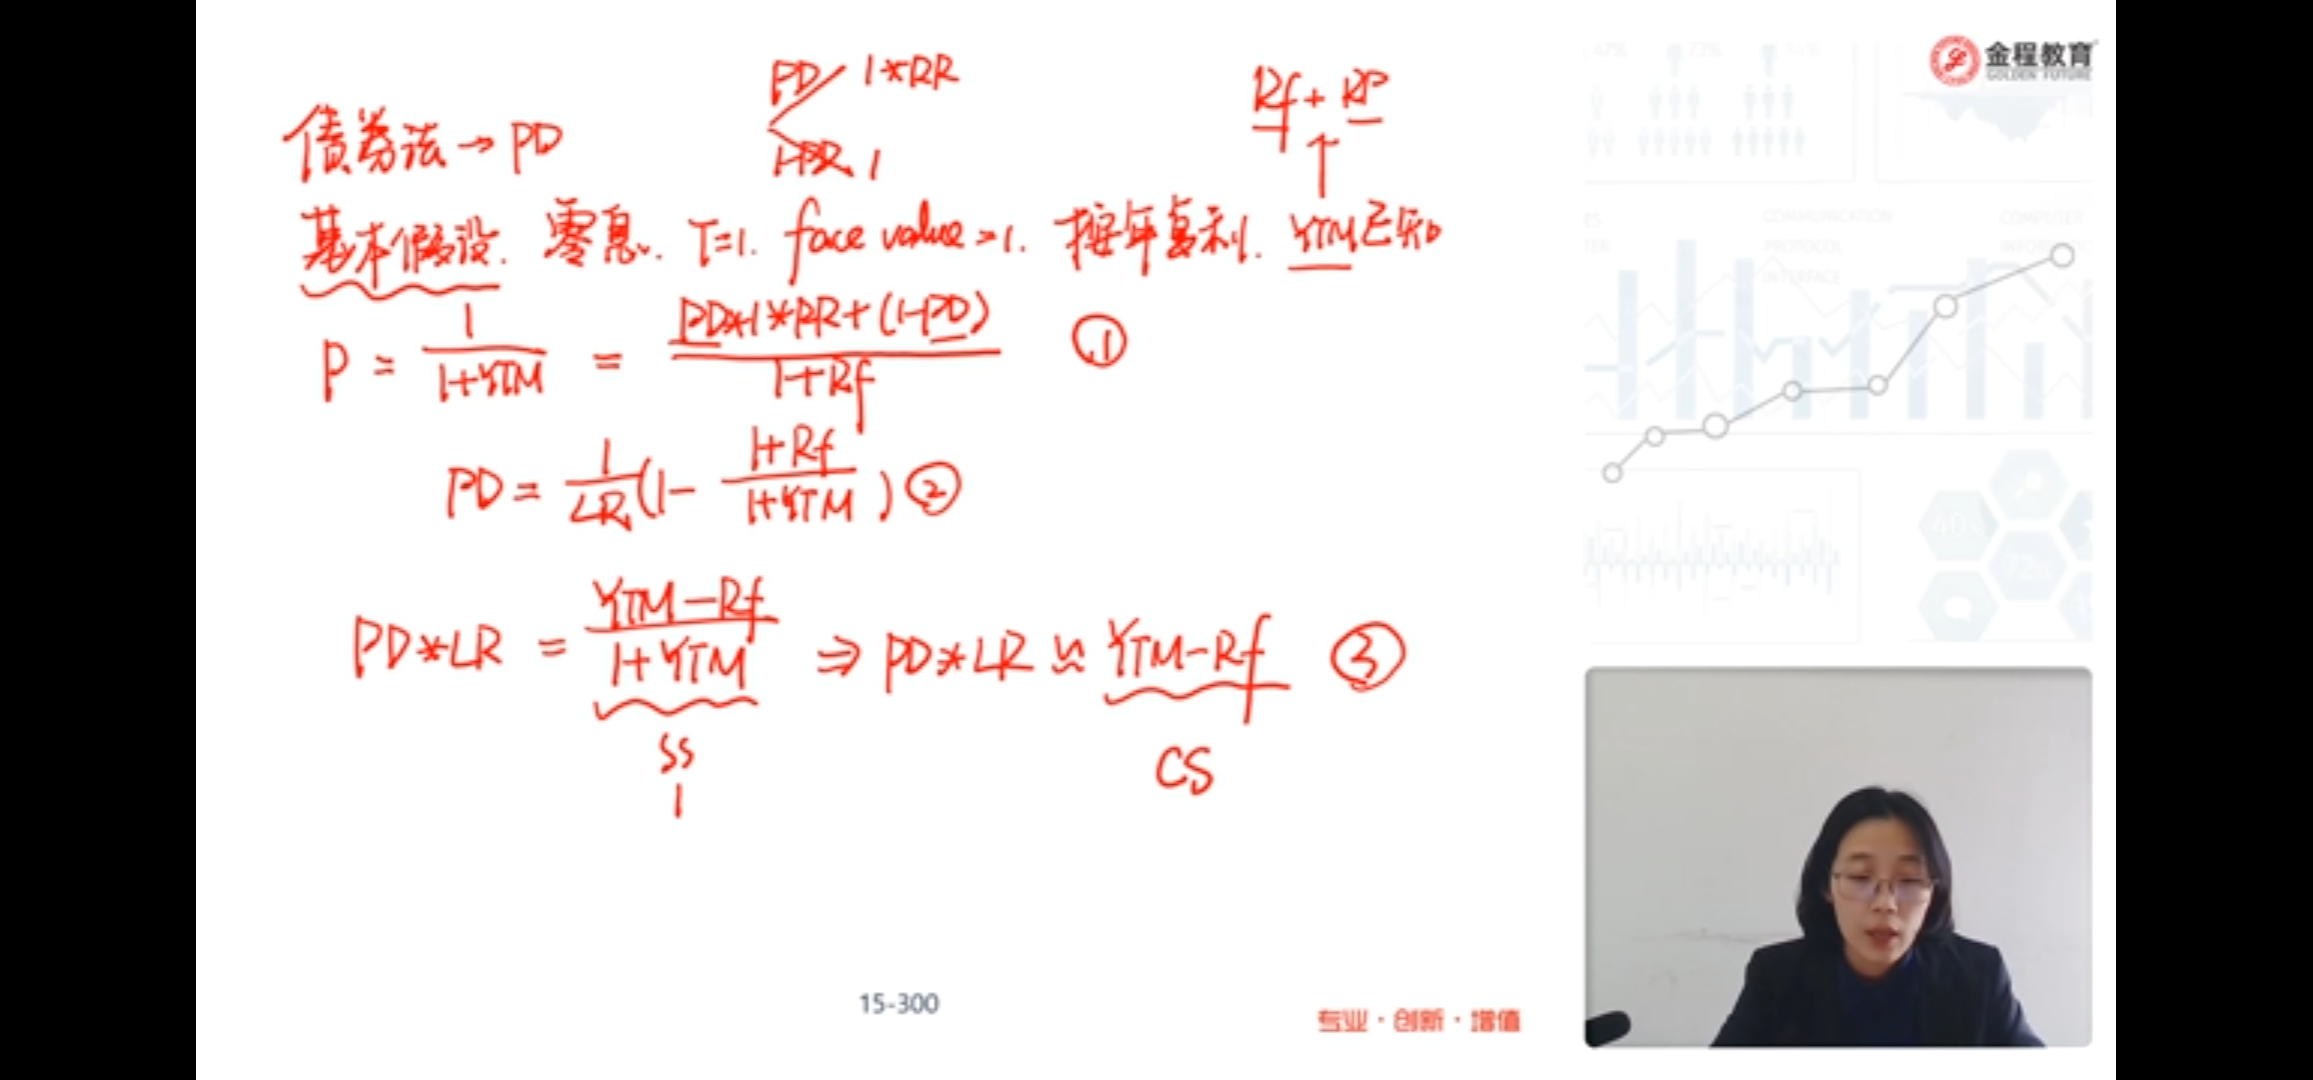 PD 1*RR
Rf + RP
债券法→PD
1-PD 1
基本假设. 零息. T=1. face value=1. 按年复利. YTM已知
P = 1/(1+YTM) = (PD*1*RR+(1-PD))/(1+Rf) ①
PD = 1/LR (1 - (1+Rf)/(1+YTM)) ②
PD*LR = (YTM-Rf)/(1+YTM) ⇒ PD*LR ≈ YTM-Rf ③
SS
1
CS
15-300
专业·创新·增值
金程教育
GOLDEN FUTURE
47% 73%
COMMUNICATION
PROTOCOL
INTERFACE
COMPUTER
40%
72%